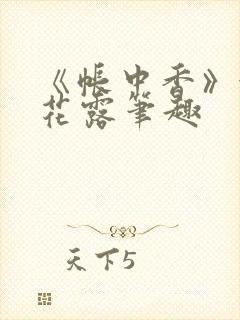 《帐中香》
花露笔趣
天下5